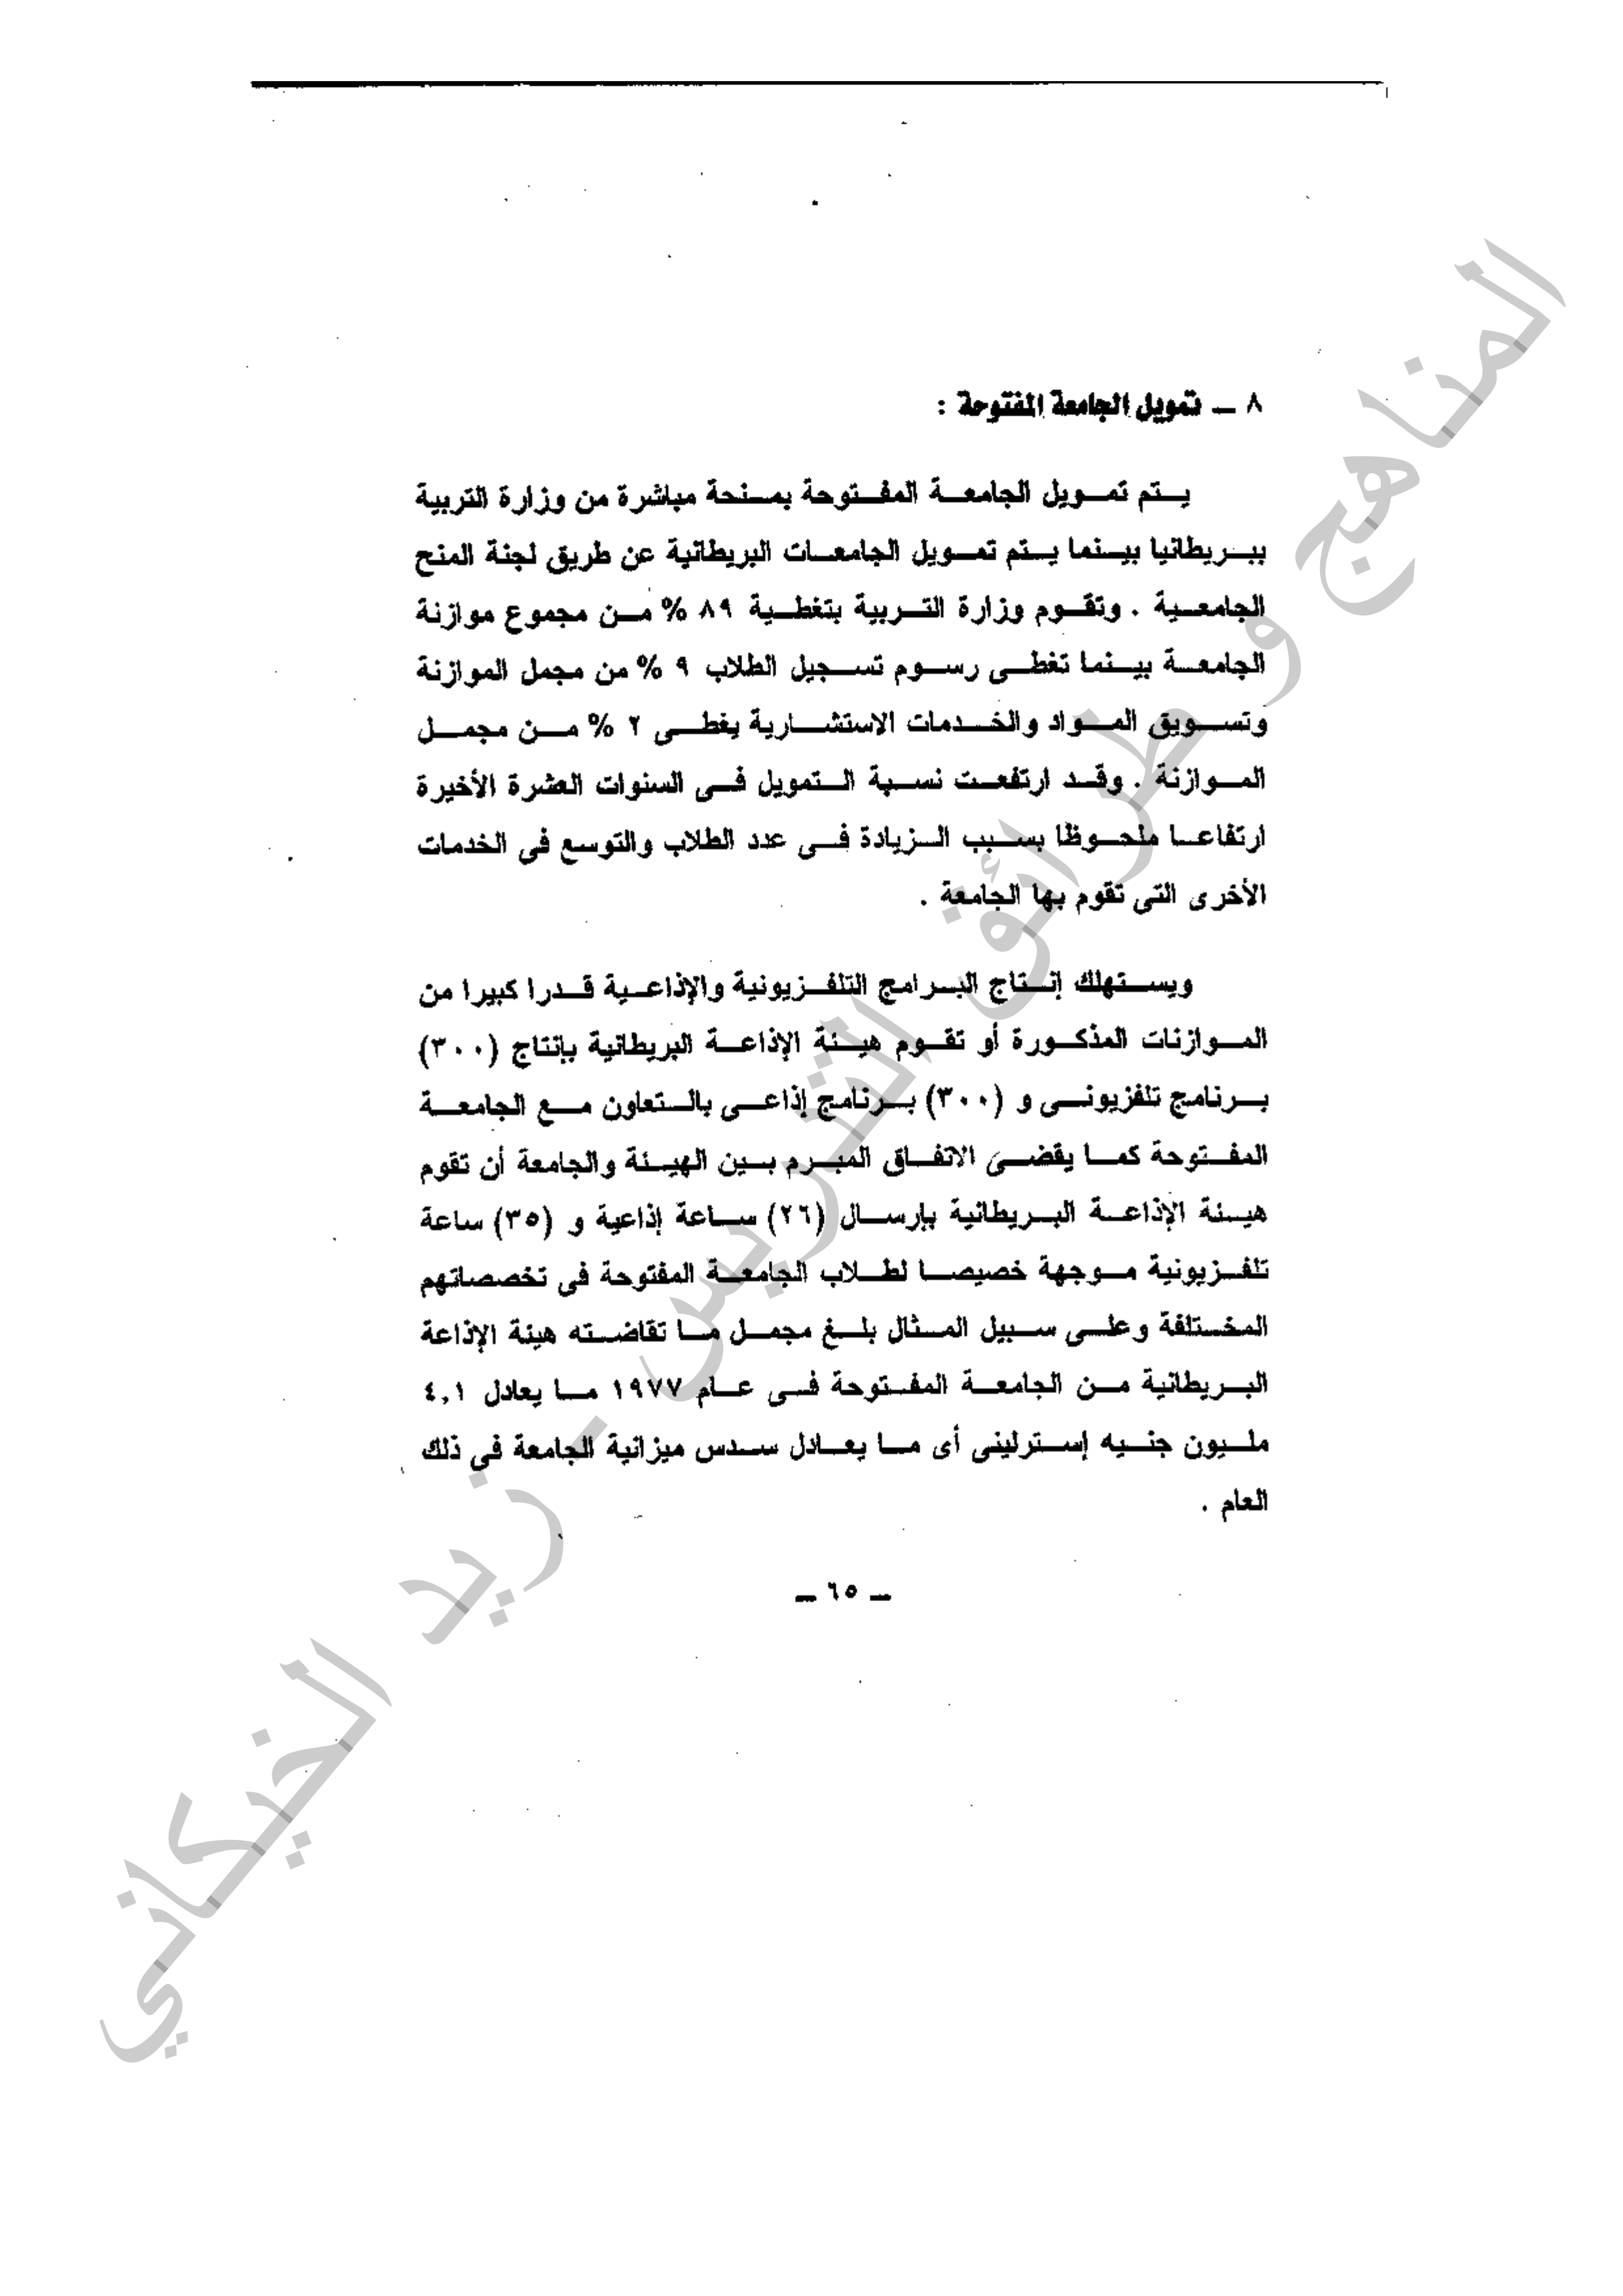 ٨ ــ تمويل الجامعة المفتوحة :
يتم تمويل الجامعة المفتوحة بمنحة مباشرة من وزارة التربية
ببريطانيا بينما يتم تمويل الجامعات البريطانية عن طريق لجنة المنح
الجامعية . وتقوم وزارة التربية بتغطية ٨٩ % من مجموع موازنة
الجامعة بينما تغطى رسوم تسجيل الطلاب ٩ % من مجمل الموازنة
وتسويق المواد والخدمات الاستشارية يغطى ٢ % من مجمل
الموازنة . وقد ارتفعت نسبة التمويل فى السنوات العشرة الأخيرة
ارتفاعا ملحوظا بسبب الزيادة فى عدد الطلاب والتوسع فى الخدمات
الأخرى التى تقوم بها الجامعة .
ويستهلك إنتاج البرامج التلفزيونية والإذاعية قدرا كبيرا من
الموازنات المذكورة أو تقوم هيئة الإذاعة البريطانية بإنتاج (٣٠٠)
برنامج تلفزيونى و (٣٠٠) برنامج إذاعى بالتعاون مع الجامعة
المفتوحة كما يقضى الاتفاق المبرم بين الهيئة والجامعة أن تقوم
هيئة الإذاعة البريطانية بإرسال (٢٦) ساعة إذاعية و (٣٥) ساعة
تلفزيونية موجهة خصيصا لطلاب الجامعة المفتوحة فى تخصصاتهم
المختلفة وعلى سبيل المثال بلغ مجمل ما تقاضته هيئة الإذاعة
البريطانية من الجامعة المفتوحة فى عام ١٩٧٧ ما يعادل ٤,١
مليون جنيه إسترلينى أى ما يعادل سدس ميزانية الجامعة فى ذلك
العام .
ــ ٦٥ ــ
المناهج و طرائق التدريس - زيد الخيكاني